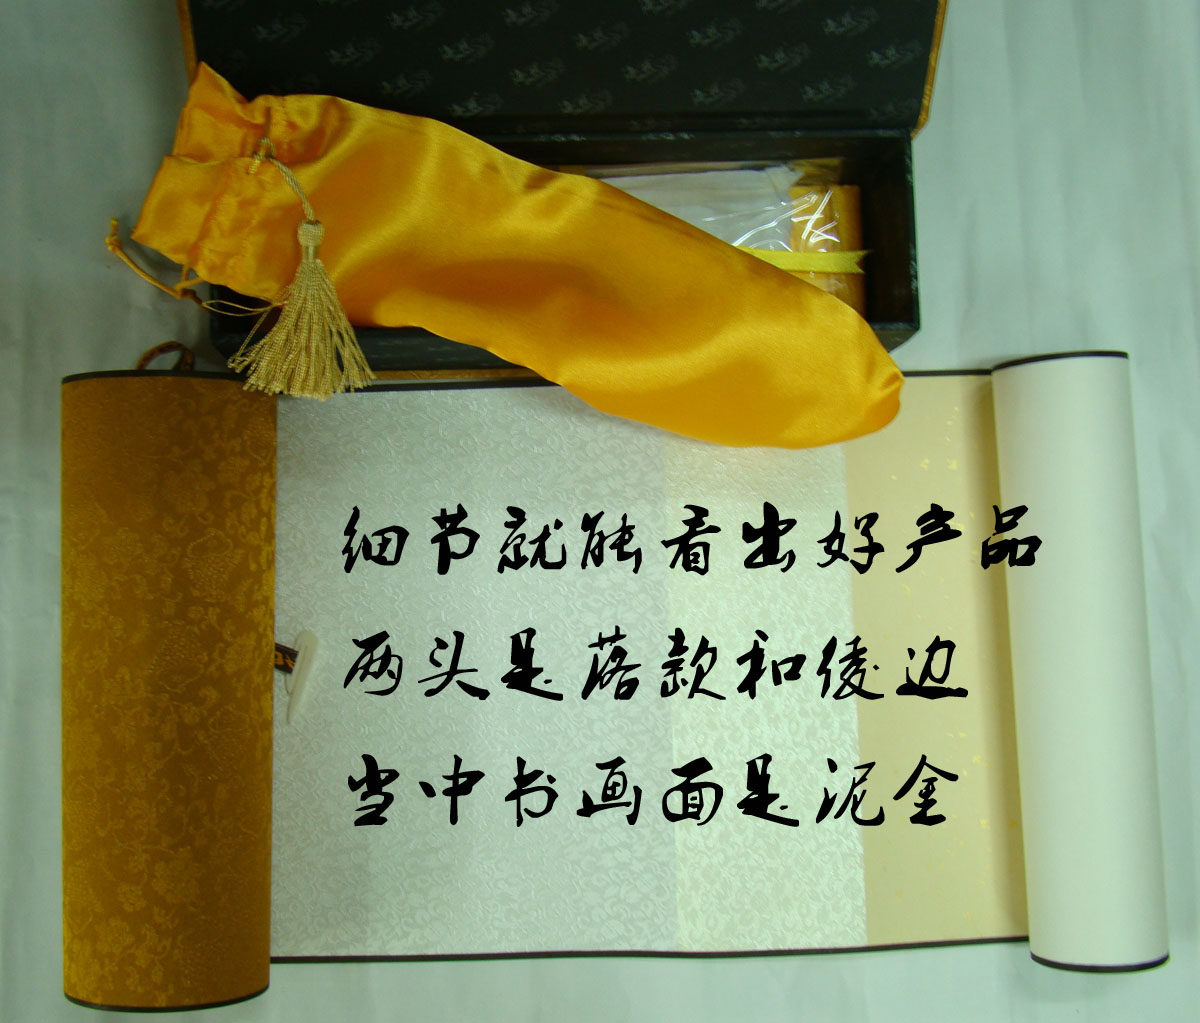 细节就能看出好产品
两头是落款和倰边
当中书画面是泥金